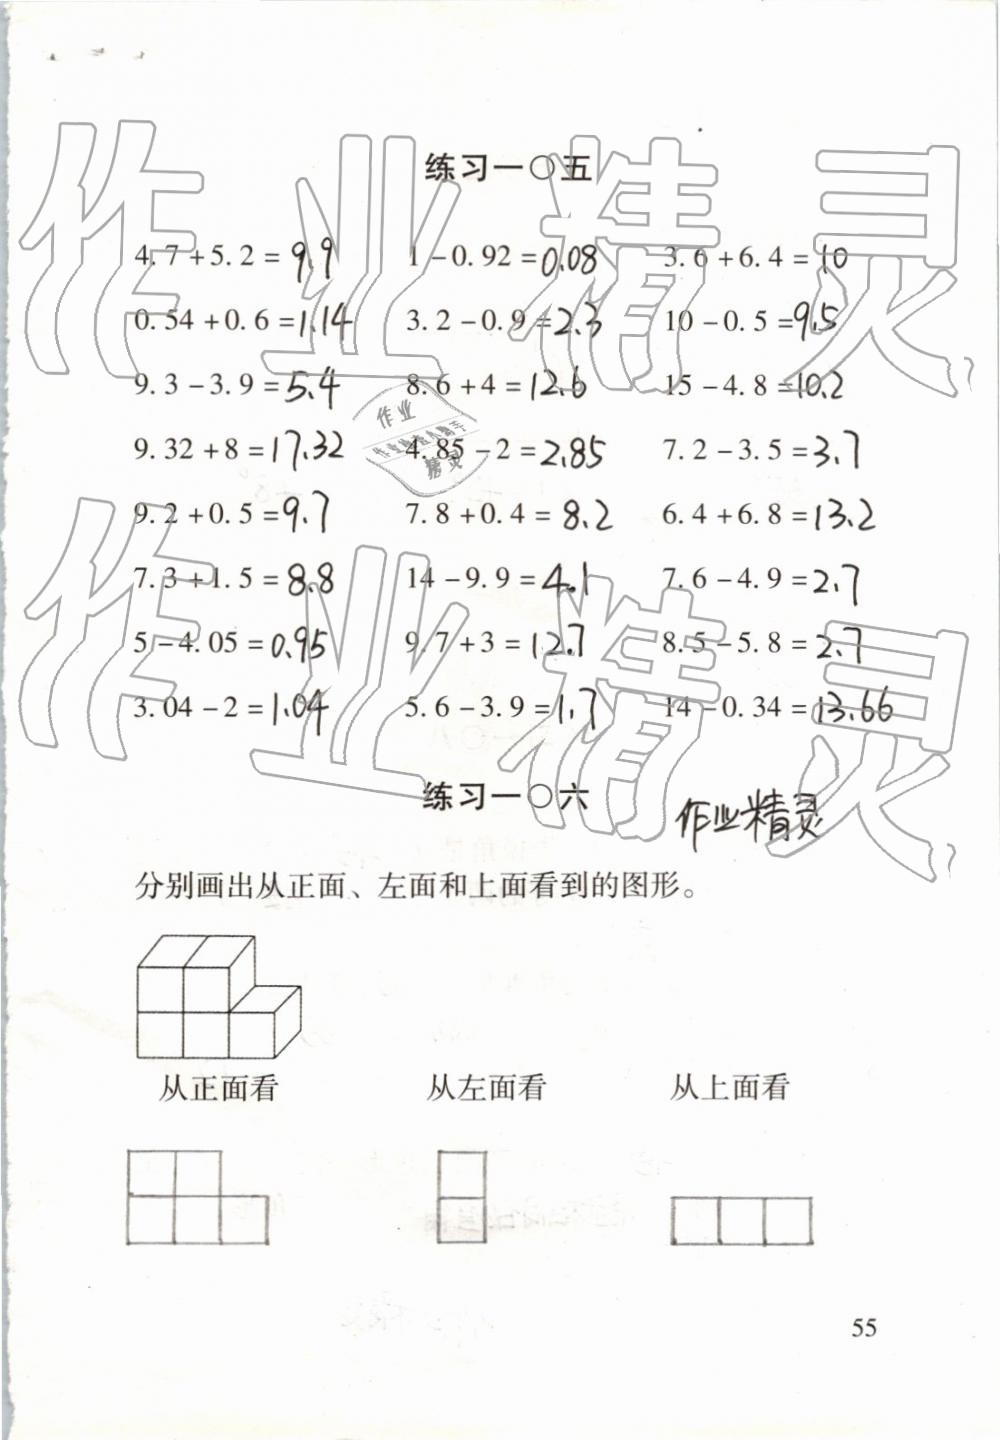 练习一〇五
4.7+5.2=9.9 1-0.92=0.08 3.6+6.4=10
0.54+0.6=1.14 3.2-0.9=2.3 10-0.5=9.5
9.3-3.9=5.4 8.6+4=12.6 15-4.8=10.2
9.32+8=17.32 4.85-2=2.85 7.2-3.5=3.7
9.2+0.5=9.7 7.8+0.4=8.2 6.4+6.8=13.2
7.3+1.5=8.8 14-9.9=4.1 7.6-4.9=2.7
5-4.05=0.95 9.7+3=12.7 8.5-5.8=2.7
3.04-2=1.04 5.6-3.9=1.7 14-0.34=13.66
作业精灵
作业
精灵
作业精灵
练习一〇六
作业精灵
分别画出从正面、左面和上面看到的图形。
从正面看 从左面看 从上面看
55